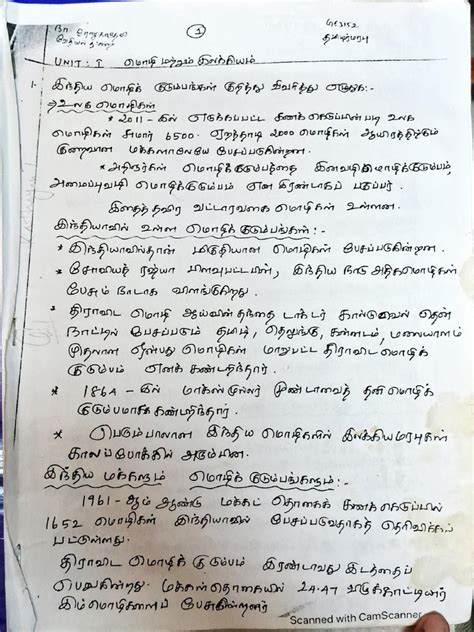 ①
GE3152
தமிழர்மரபு
UNIT: I மொழி மற்றும் இலக்கியம்
1. இந்திய மொழிக் குடும்பங்கள் குறித்து விவரித்து எழுதுக:-
⇒ உலக மொழிகள்
* 2011-இல் எடுக்கப்பட்ட கணக்கெடுப்பின்படி உலக
மொழிகள் சுமார் 6500. ஏறத்தாழ 2000 மொழிகள் ஆயிரத்திற்கும்
குறைவான மக்களாலேயே பேசப்படுகின்றன.
* அறிஞர்கள் மொழிக்குடும்பத்தை இனவழி மொழிக்குடும்பம்,
அமைப்புவழி மொழிக்குடும்பம் என இரண்டாகப் பகுப்பர்.
இதைத்தவிர வட்டாரவகை மொழிகள் உள்ளன.
இந்தியாவில் உள்ள மொழிக் குடும்பங்கள்:-
* இந்தியாவில்தான் மிகுதியான மொழிகள் பேசப்படுகின்றன.
* சோவியத் ரஷ்யா பிளவுபட்டபின், இந்திய நாடு அதிகமொழிகள்
பேசும் நாடாக விளங்குகிறது.
* திராவிட மொழி ஆய்வின் தந்தை டாக்டர் கால்டுவெல் தென்
நாட்டில் பேசப்படும் தமிழ், தெலுங்கு, கன்னடம், மலையாளம்
முதலான ஒன்பது மொழிகள் மாறுபட்ட திராவிட மொழிக்
குடும்பம் எனக் கண்டறிந்தார்.
* 1864-இல் மாக்ஸ்முல்லர் முண்டாவைத் தனி மொழிக்
குடும்பமாகக் கண்டறிந்தார்.
* பெரும்பாலான இந்திய மொழிகளில் இலக்கியமரபுகள்
காலப்போக்கில் அரும்பின.
இந்திய மக்களும் மொழிக் குடும்பங்களும்:-
1961-ஆம் ஆண்டு மக்கட் தொகைக் கணக்கெடுப்பில்
1652 மொழிகள் இந்தியாவில் பேசப்படுவதாகத் தெரிவிக்கப்
பட்டுள்ளது.
திராவிட மொழிக் குடும்பம் இரண்டாவது இடத்தைப்
பெறுகின்றது. மக்கள்தொகையில் 24.47 விழுக்காட்டினர்
இம்மொழிகளைப் பேசுகின்றனர்
Scanned with CamScanner